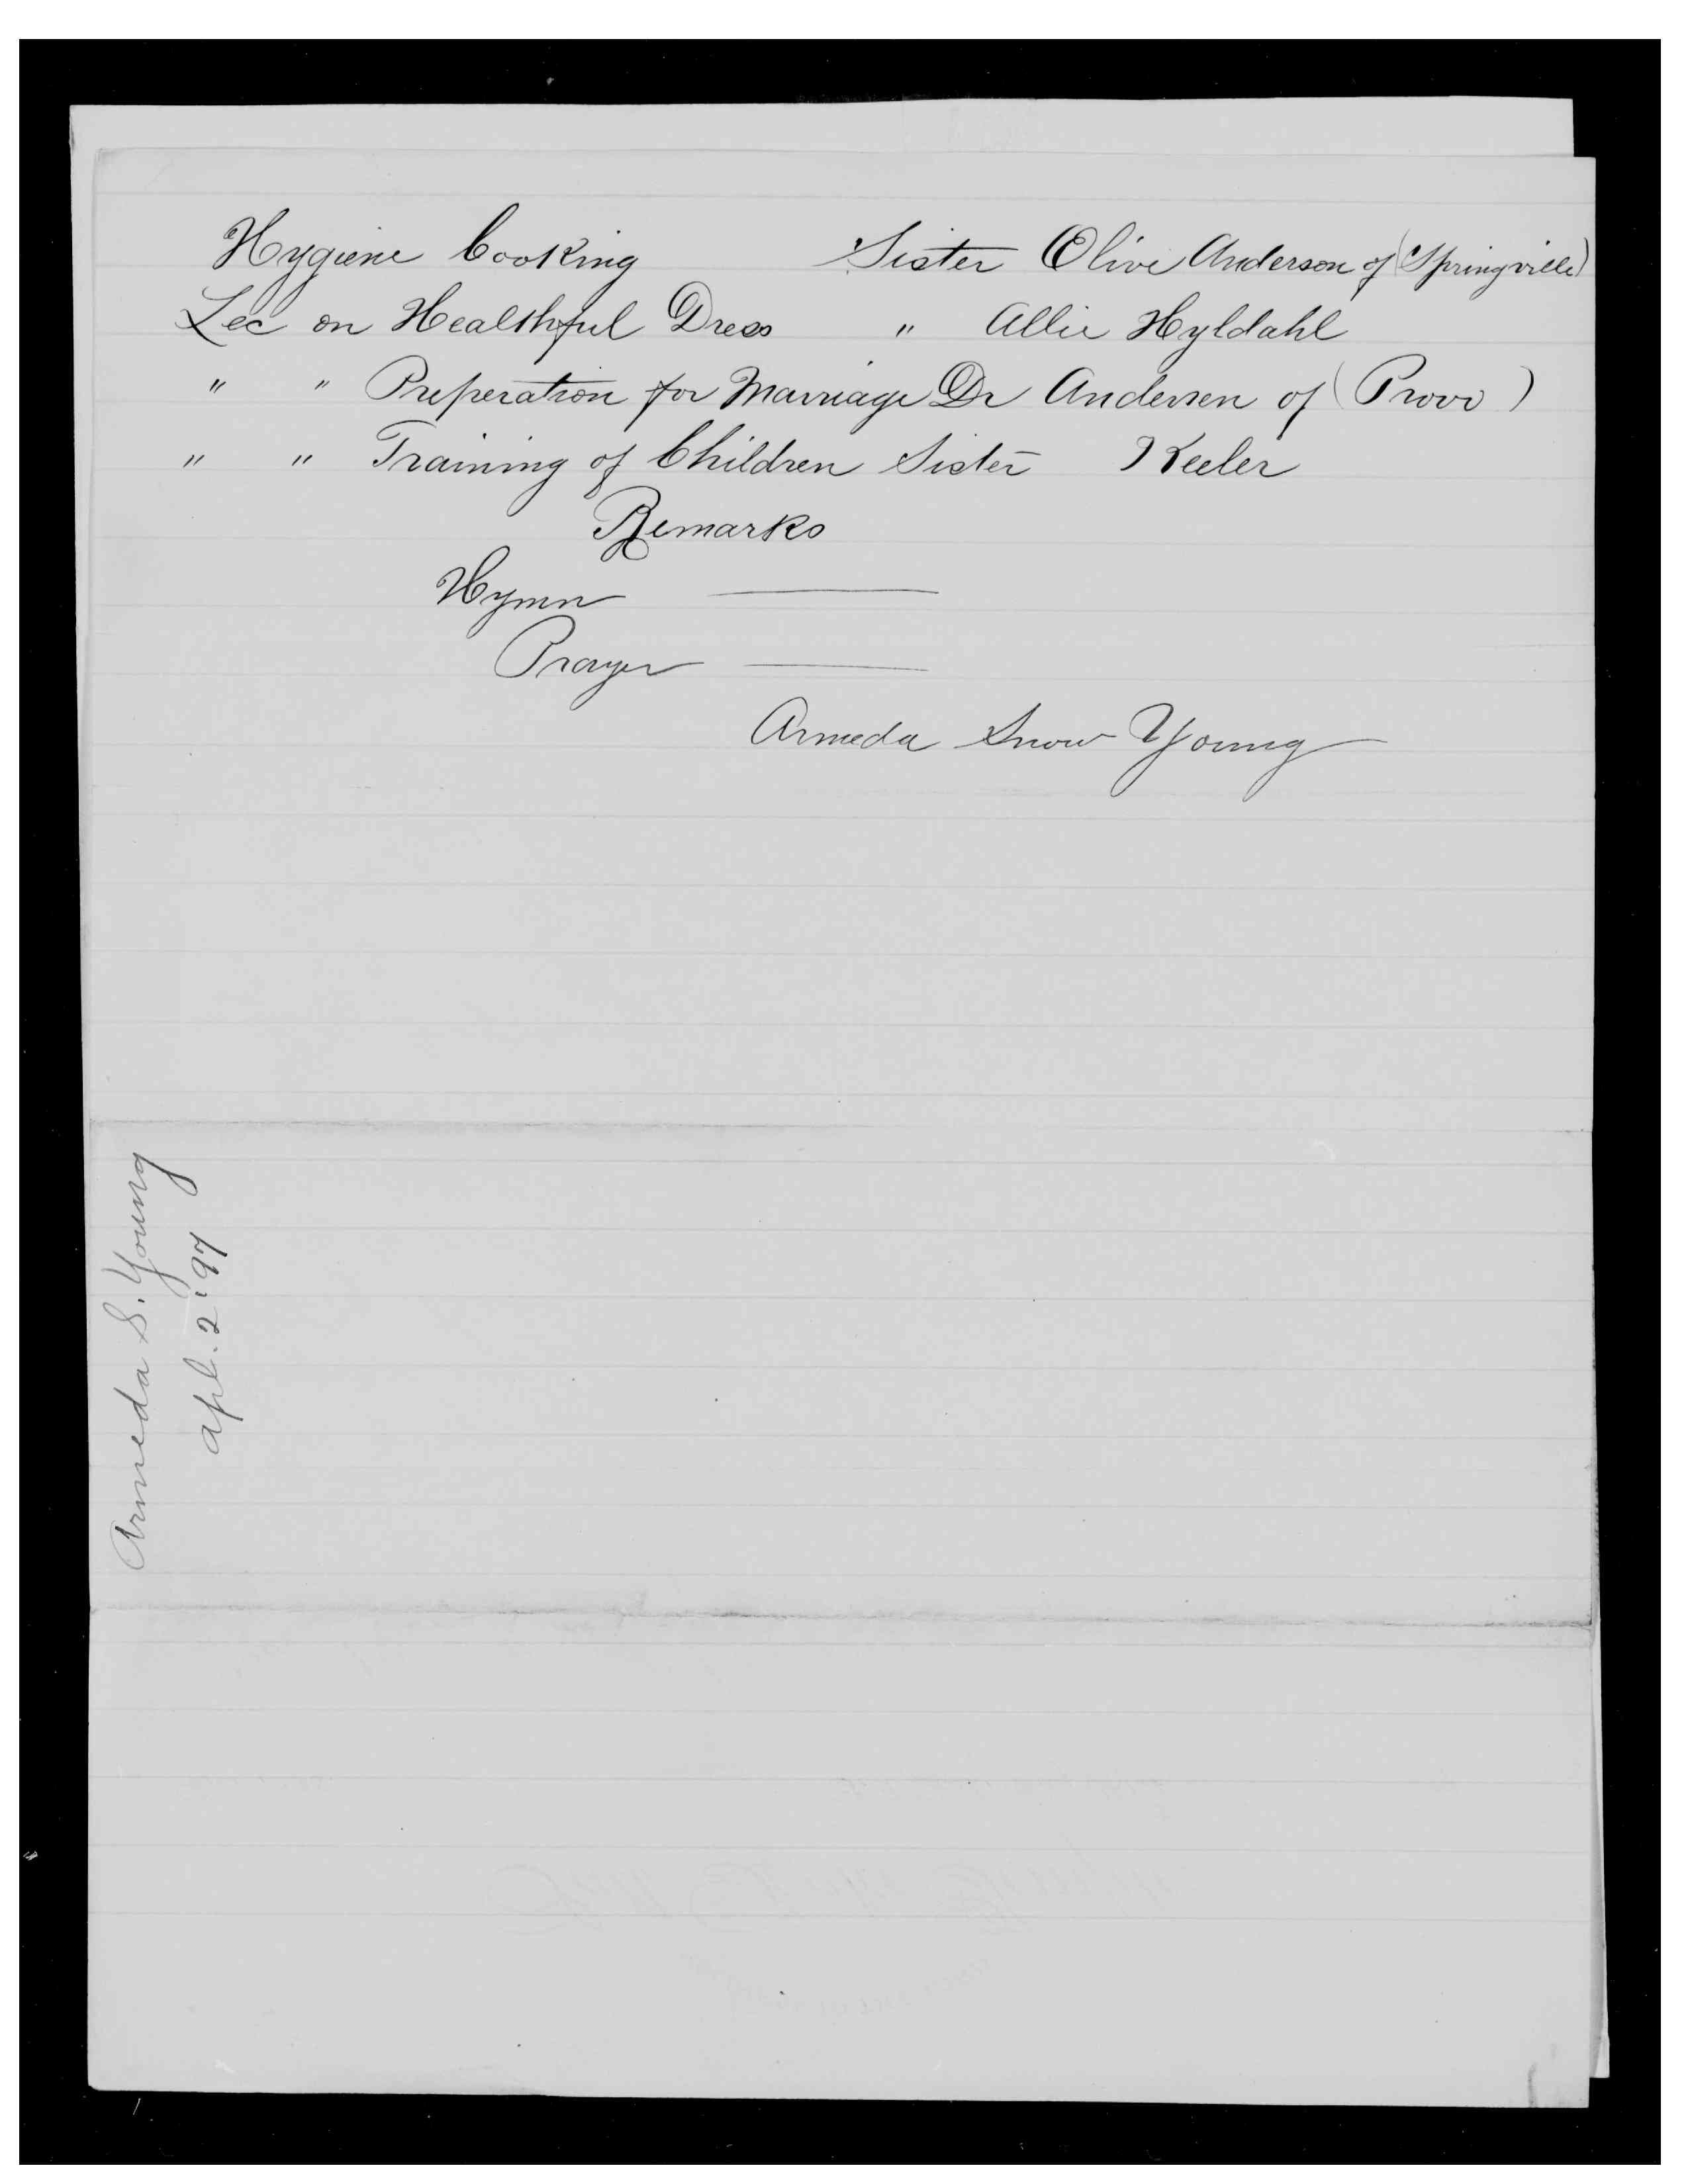 Hygiene Cooking Sister Olive Anderson of (Springville)
Lec on Healthful Dress " Allie Hyldahl
" " Preperation for Marriage Dr Andersen of (Provo)
" " Training of Children Sister Keeler
Remarks
Hymn ———
Prayer ———
Armeda Snow Young
Armeda S. Young
apl. 2 '97